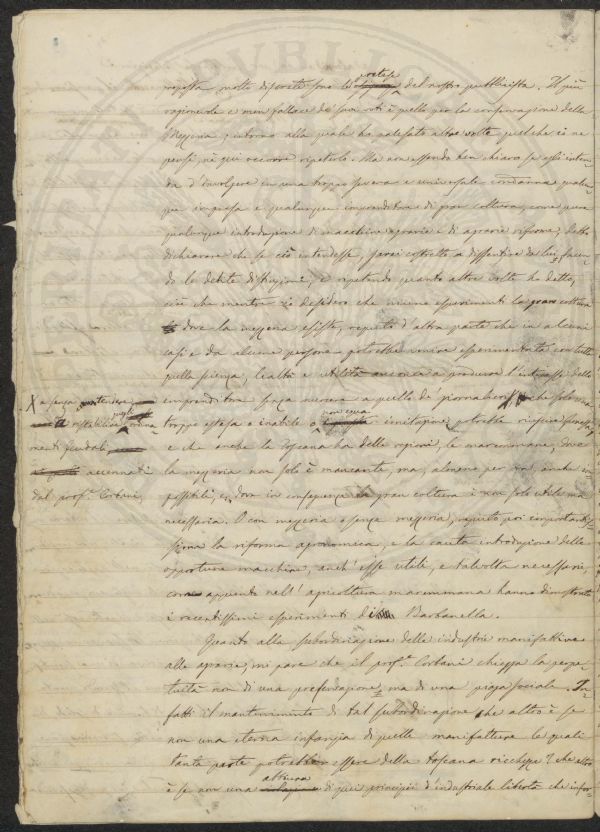 proposta, molto discrete sono le pretese del nostro pubblicista. Il più
ragionevole e men fallace de' suoi voti è quello per la conservazione della
Mezzeria; intorno alla quale ho palesato altre volte quel che io ne
pensi, nè qui occorre ripeterlo. Ma non essendo ben chiaro se egli inten-
da d'involgere in una troppo severa e universale condanna qualun-
que impresa e qualunque imprenditore di gran coltura, come pure
qualunque introduzione di macchine agrarie e di agrarie riforme, debbo
dichiarare che se ciò intendesse, sarei costretto a dissentire da lui, facen-
do le debite distinzioni, e ripetendo quanto altre volte ho detto,
cioè che mentre io desidero che niuno esperimenti la gran coltura
dove la mezzeria esiste, reputo d'altra parte che in alcuni
casi e da alcune persone potrebbe venire esperimentata con tutta
quella scienza, lealtà e utilità ancora a produrre l'interesse dello
imprenditore senza nuocere a quello de' giornalieri X che solo una
troppo estesa o inabile o non equa imitazione potrebbe riuscire funesta,
e che anche la Toscana ha delle regioni, le maremmane, dove
la mezzeria non solo è mancante, ma, almeno per ora, anche im-
possibile, e dove in conseguenza la gran coltura è non solo utile ma
necessaria. O con mezzeria o senza mezzeria, reputo poi importantis-
sima la riforma agronomica, e la cauta introduzione delle
opportune macchine, anch'esse utili, e talvolta necessarie,
come appunto nell'agricoltura maremmana hanno dimostrato
i recentissimi esperimenti di Barbanella.
Quanto alla subordinazione delle industrie manifattrici
alle agrarie, mi pare che il prof.e Corbani chiegga la perpe-
tuità non di una profondazione, ma di una piaga sociale. In-
fatti il mantenimento di tal subordinazione che altro è se
non una eterna infanzia di quelle manifatture le quali
tanta parte potrebber essere della toscana ricchezza? che altro
è se non una abiura di quei principii d'industriale libertà che infor-
X e senza
ripristinare
gli ordina-
menti feudali,
accennati
dal prof.e Corbani,